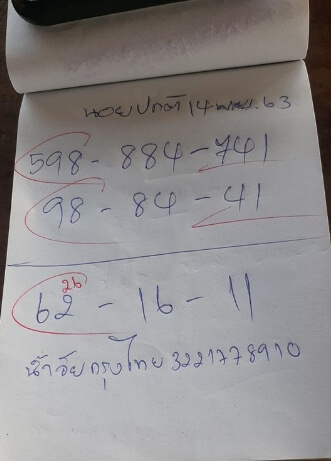 หอยปกติ 14 พ.ย. 63
598 - 884 - 741
98 - 84 - 41
26
62 - 16 - 11
น้าจัย กรุงไทย 3221778910